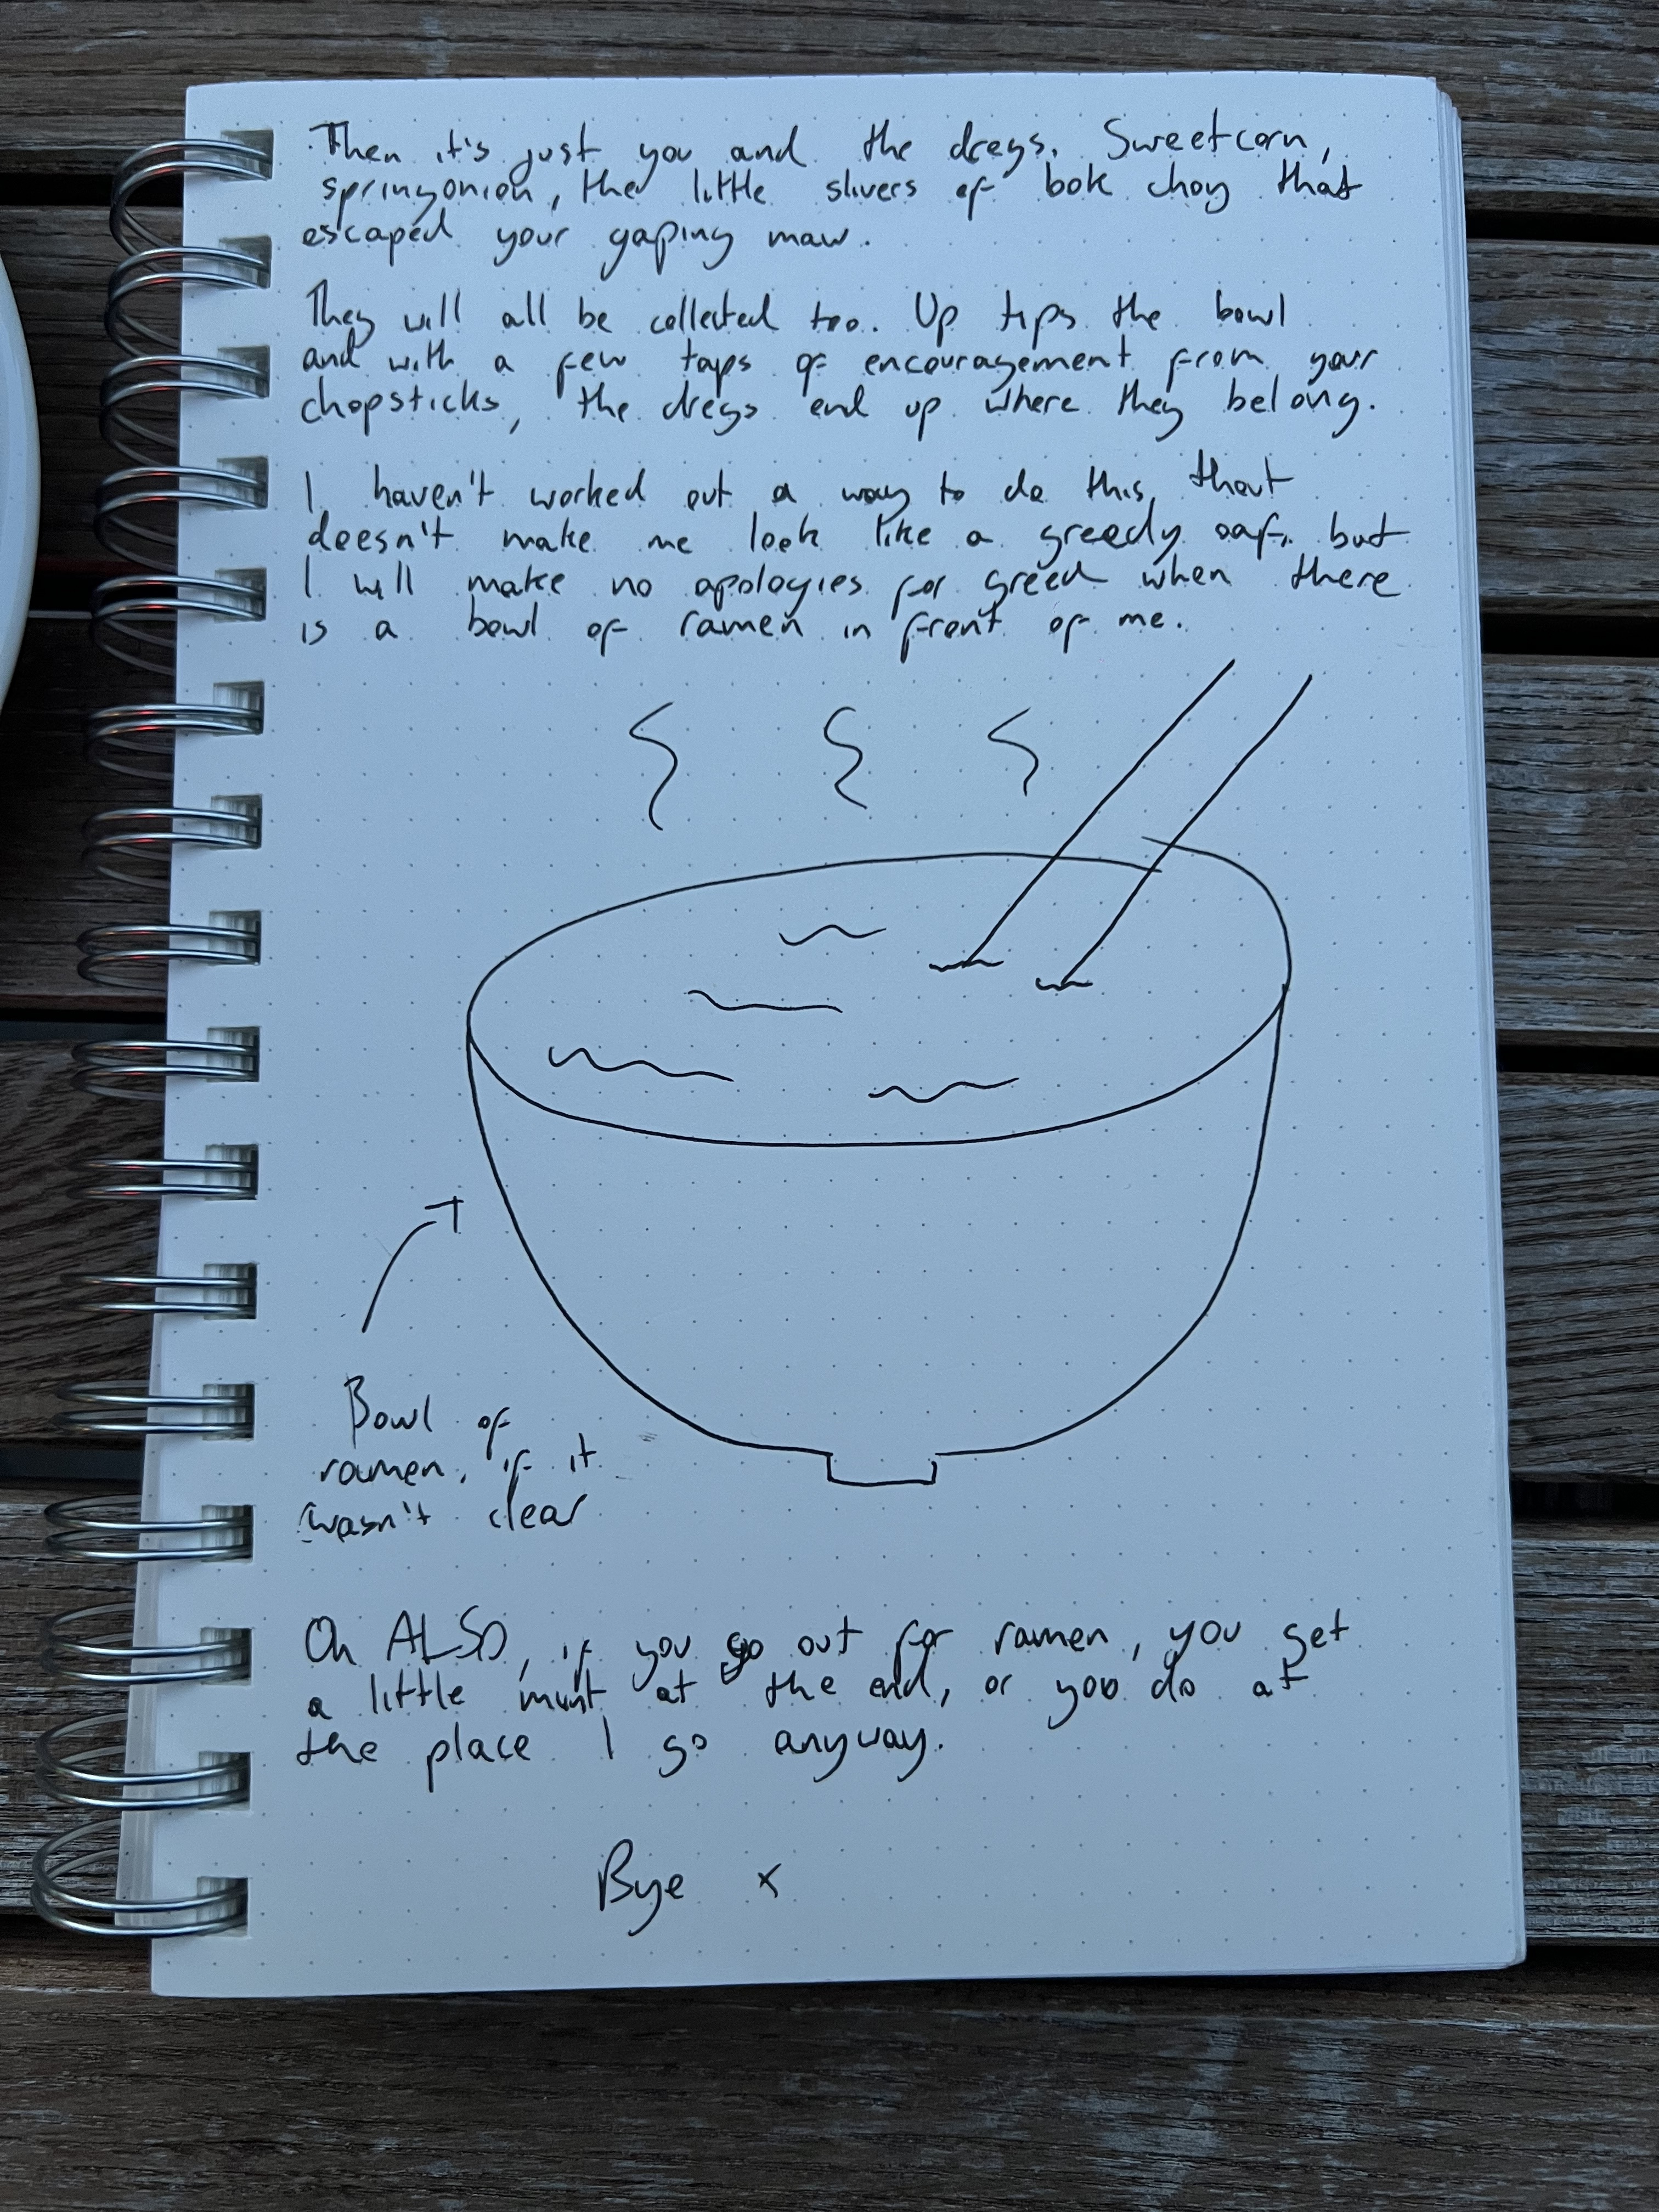 Then it's just you and the dregs. Sweetcorn,
springonion, the little slivers of bok choy that
escaped your gaping maw.
They will all be collected too. Up tips the bowl
and with a few taps of encouragement from your
chopsticks, the dregs end up where they belong.
I haven't worked out a way to do this that
doesn't make me look like a greedy oaf, but
I will make no apologies for greed when there
is a bowl of ramen in front of me.
Bowl of
ramen, if it
wasn't clear
Oh ALSO, if you go out for ramen, you get
a little mint at the end, or you do at
the place I go anyway.
Bye x